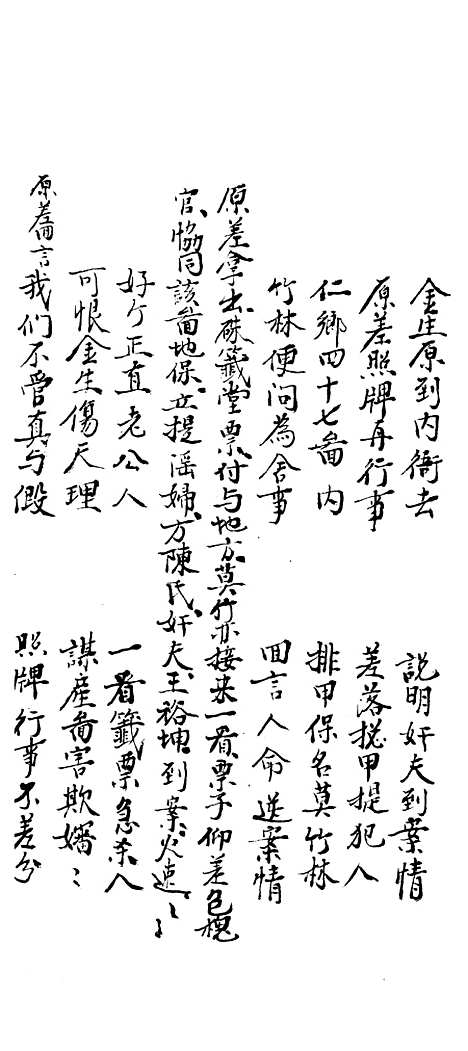 金生原到内衙去　説明奸夫到案情
原差照牌再行事　差落捴甲提犯人
仁鄉四十七啚内　排甲保名莫竹林
竹林便问為舍事　囬言人命逆案情
原差拿出硃籤堂票、付与地方、莫竹亦接来一看、票子仰差包槐
官、恊同該啚地保、立提滛婦、方陳氏、奸夫、王裕坤、到案、火速、〻〻
好个正直老公人　一看籤票急杀人
可恨金生傷天理　謀產啚害欺孀〻
原差啚言我们不管真与假　照牌行事不差分